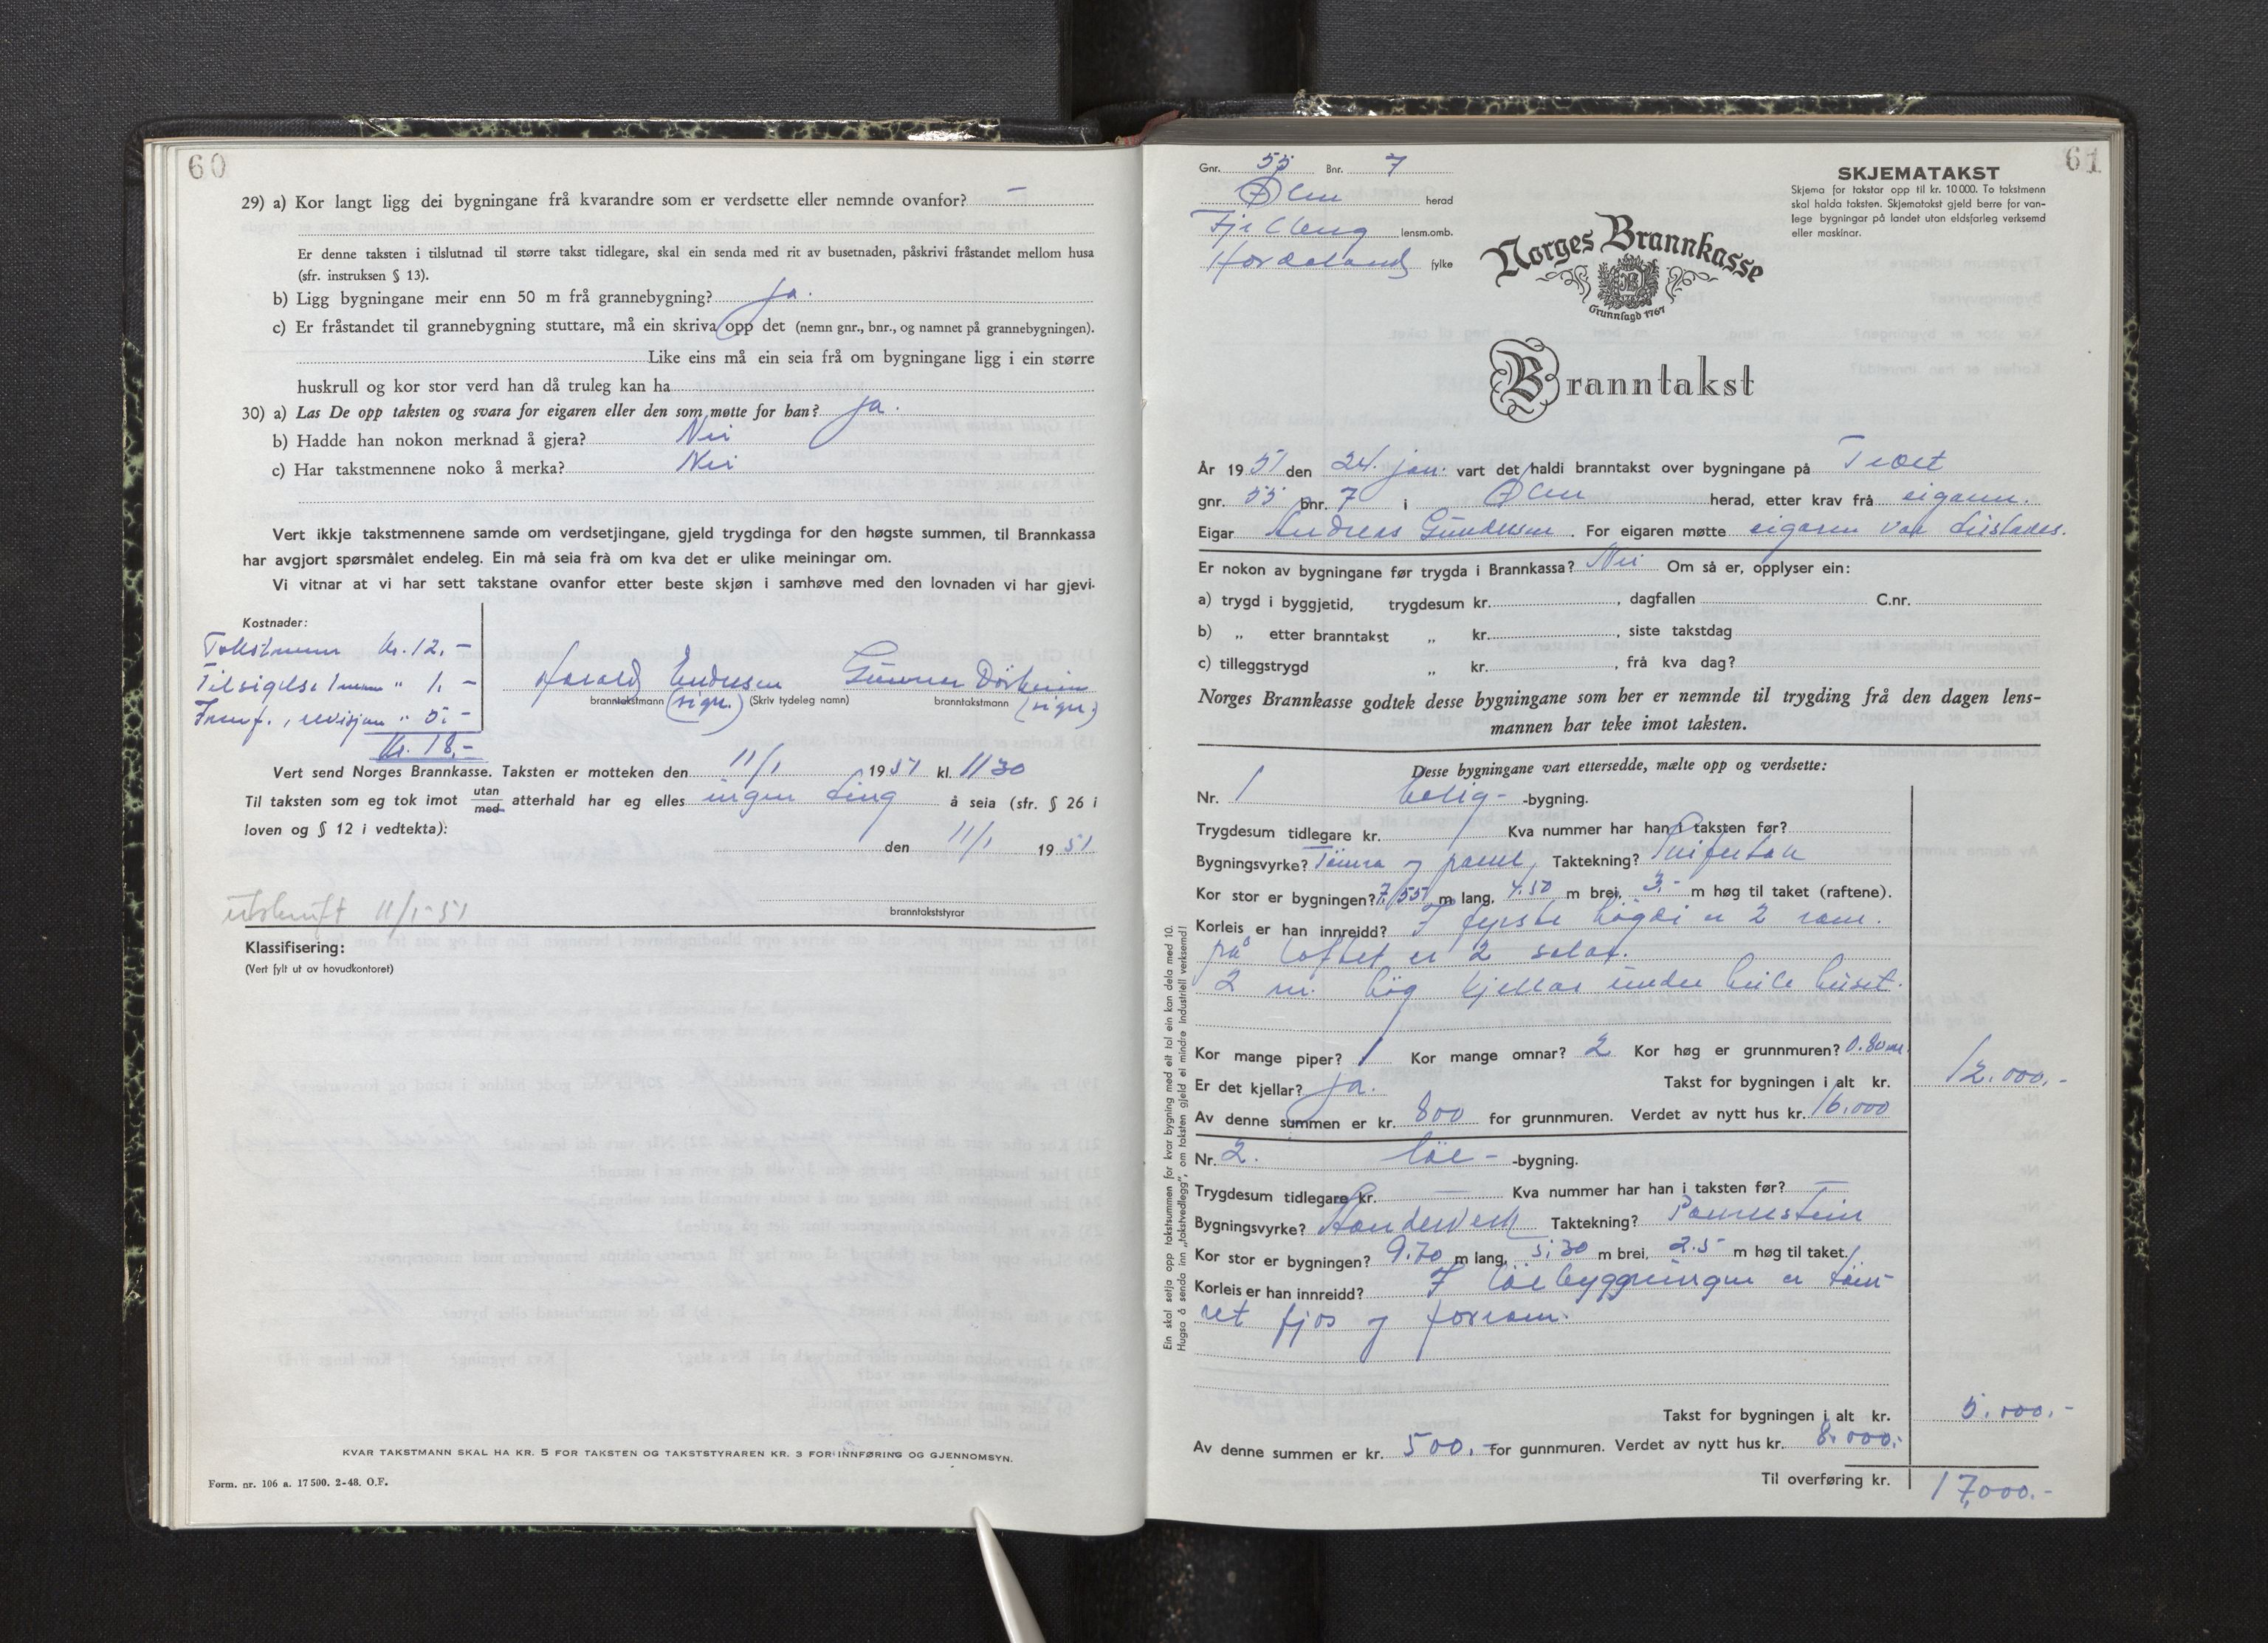 60
29) a) Kor langt ligg dei bygningane frå kvarandre som er verdsette eller nemnde ovanfor? —
Er denne taksten i tilslutnad til større takst tidlegare, skal ein senda med rit av busetnaden, påskrivi fråstandet mellom husa
(sfr. instruksen § 13).
b) Ligg bygningane meir enn 50 m frå grannebygning? Ja.
c) Er fråstandet til grannebygning stuttare, må ein skriva opp det (nemn gnr., bnr., og namnet på grannebygningen).
Like eins må ein seia frå om bygningane ligg i ein større
huskrull og kor stor verd han då truleg kan ha
30) a) Las De opp taksten og svara for eigaren eller den som møtte for han? Ja.
b) Hadde han nokon merknad å gjera? Nei
c) Har takstmennene noko å merka? Nei
Vert ikkje takstmennene samde om verdsetjingane, gjeld trygdinga for den høgste summen, til Brannkassa
har avgjort spørsmålet endeleg. Ein må seia frå om kva det er ulike meiningar om.
Vi vitnar at vi har sett takstane ovanfor etter beste skjøn i samhøve med den lovnaden vi har gjevi.
Kostnader:
Takstmenn kr. 12,-
Tilsigelse 1 mann " 1,-
Innf., revisjon " 5,-
Kr. 18,-
Harald Endresen Gunnar Dörheim
branntakstmann (sign.) (Skriv tydeleg namn) branntakstmann (sign.)
Vert send Norges Brannkasse. Taksten er motteken den 11/1 1951 kl. 1130
Til taksten som eg tok imot utan/med atterhald har eg elles ingen ting å seia (sfr. § 26 i
loven og § 12 i vedtekta):
den 11/1 1951
utskrift 11/1-51
branntakststyrar
Klassifisering:
(Vert fylt ut av hovudkontoret)
KVAR TAKSTMANN SKAL HA KR. 5 FOR TAKSTEN OG TAKSTSTYRAREN KR. 3 FOR INNFØRING OG GJENNOMSYN.
Form. nr. 106 a. 17500. 2-48. O.F.
61
Gnr. 55 Bnr. 7
Ølen herad
Fjelberg lensm.omb.
Hordaland fylke
SKJEMATAKST
Skjema for takstar opp til kr. 10 000. To takstmenn
skal halda taksten. Skjematakst gjeld berre for van-
lege bygningar på landet utan eldsfarleg verksemd
eller maskinar.
Norges Brannkasse
Grunnlagd 1767
Branntakst
År 1951 den 24. jan. vart det haldi branntakst over bygningane på Tveit
gnr. 55 bnr. 7 i Ølen herad, etter krav frå eigaren.
Eigar Andreas Gundersen. For eigaren møtte eigaren var tilstades.
Er nokon av bygningane før trygda i Brannkassa? Nei Om så er, opplyser ein:
a) trygd i byggjetid, trygdesum kr. , dagfallen C.nr.
b) „ etter branntakst „ kr. , siste takstdag
c) tilleggstrygd „ kr. , frå kva dag?
Norges Brannkasse godtek desse bygningane som her er nemnde til trygding frå den dagen lens-
mannen har teke imot taksten.
Desse bygningane vart ettersedde, mælte opp og verdsette:
Nr. 1 bolig- -bygning.
Trygdesum tidlegare kr. Kva nummer har han i taksten før?
Bygningsvyrke? Tömra og panel, Taktekning? Skifertak
Kor stor er bygningen? 7,55 m lang, 4.50 m brei, 3,- m høg til taket (raftene).
Korleis er han innreidd? I fyrste högdi er 2 rom.
på loftet er 2 salar.
2 m. høg kjellar under heile huset.
Kor mange piper? 1 Kor mange omnar? 2 Kor høg er grunnmuren? 0.80 m.
Er det kjellar? Ja. Takst for bygningen i alt kr. 12.000,-
Av denne summen er kr. 800 for grunnmuren. Verdet av nytt hus kr. 16.000
Nr. 2. löe- -bygning.
Trygdesum tidlegare kr. — Kva nummer har han i taksten før? —
Bygningsvyrke? Bindeverk Taktekning? Pannestein
Kor stor er bygningen? 9.70 m lang, 5,30 m brei, 2.5 m høg til taket.
Korleis er han innreidd? I löebyggningen er töm-
ret fjos og forrom.
Takst for bygningen i alt kr. 5.000.-
Av denne summen er kr. 500.- for gunnmuren. Verdet av nytt hus kr. 8.000.-
Til overføring kr. 17,000.-
Ein skal setja opp takstsummen for kvar bygning med eit tal ein kan dela med 10.
Hugsa å senda inn „takstvedlegg”, om taksten gjeld ei mindre industriell verksemd!